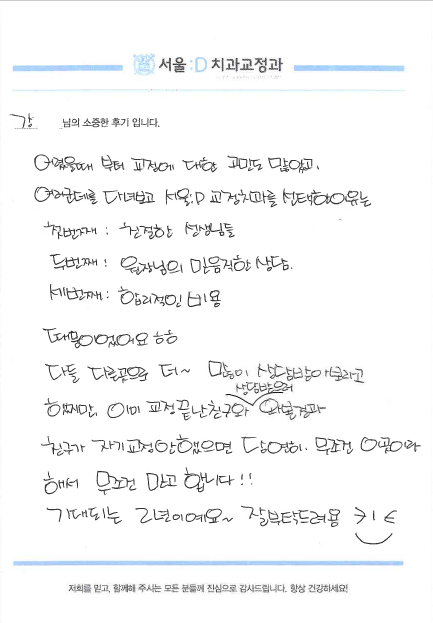 서울:D 치과교정과
강 님의 소중한 후기 입니다.
어렸을때 부터 교정에 대한 고민도 많았고,
여러군데를 다녀보고 서울:D 교정치과를 선택한이유는
첫번째 : 친절한 선생님들
두번째 : 원장님의 믿음직한 상담.
세번째 : 합리적인 비용
때문이었어요 ㅎㅎ
다들 다른곳으로 더~ 많이 상담받아보라고
했지만, 이미 교정끝난친구와 상담받으러 와본결과
친구가 자기교정안했으면 당연히. 무조건 이곳이라
해서 무조건 믿고 합니다!!
기대되는 2년이예요~ 잘부탁드려용
저희를 믿고, 함께해 주시는 모든 분들께 진심으로 감사드립니다. 항상 건강하세요!